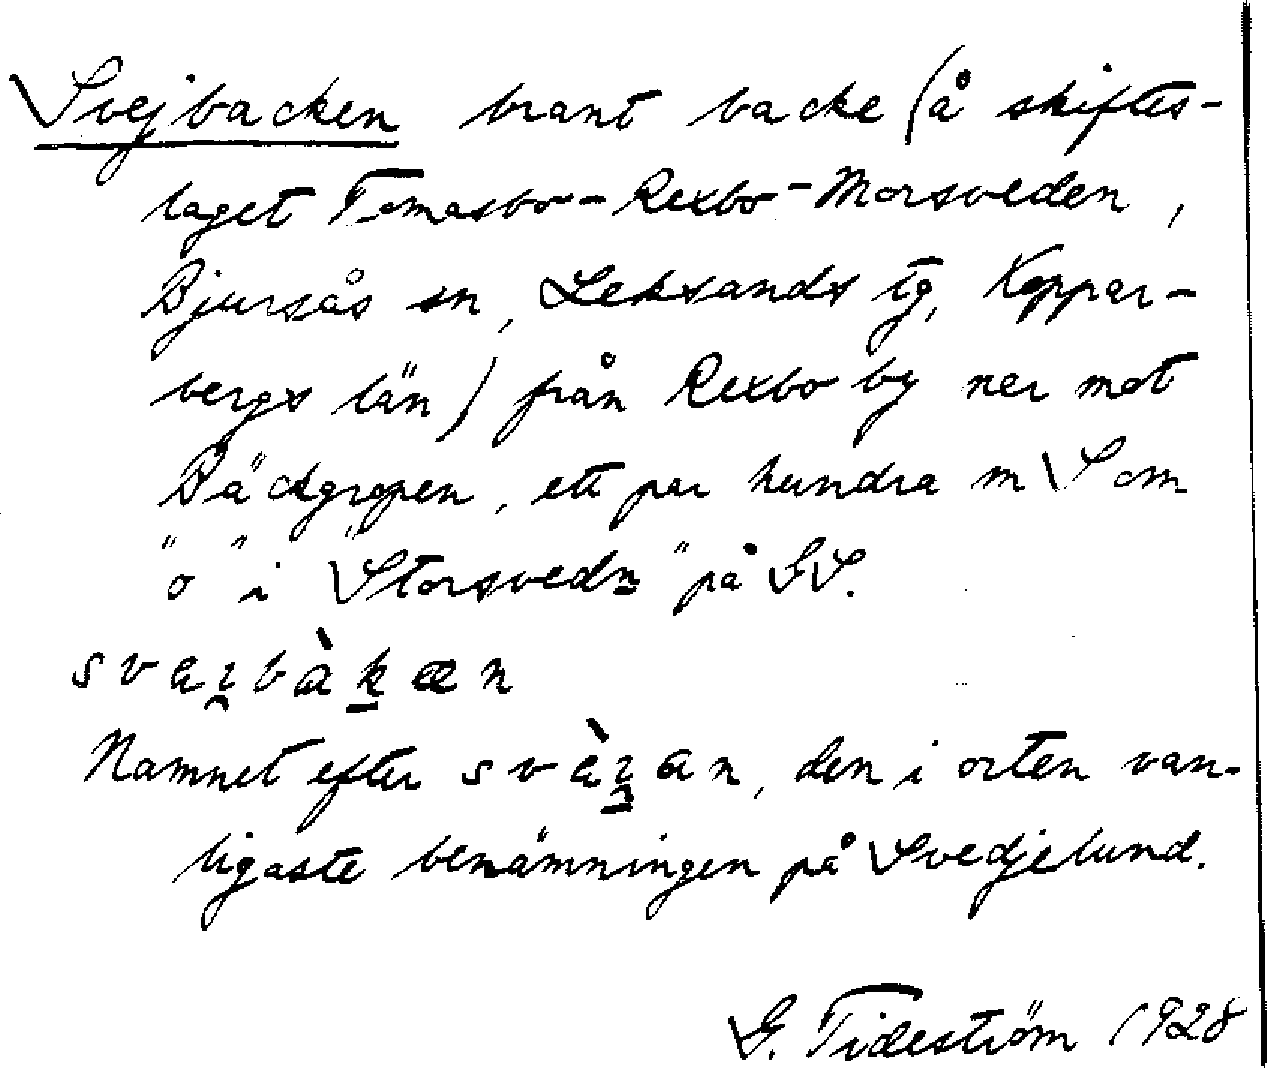 Svejbacken brant backe (å skiftes-
laget Tomasbo-Rexbo-Morsveden,
Bjursås sn, Leksands tg, Koppar-
bergs län) från Rexbo by ner mot
Bäckgropen, ett par hundra m S om
"o" i "Storsvedn" på GS.
svaɪ̯bàk̠æn
Namnet efter svàɪ̯an, den i orten van-
ligaste benämningen på Svedjelund.
G. Tideström 1928